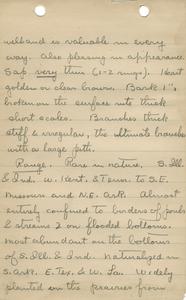 wetland is valuable in every
way. Also pleasing in appearance.
Sap very thin (1-2 rings). Heart
golden or clear brown. Bark 1"±
broken on the surface into thick
short scales. Branches thick
stiff & irregular, the ultimate branches
with a large pith.
Range. Rare in nature. S. Ill.
& Ind. W. Kent. & Tenn. to S.E.
Missouri and N.E. Ark. Almost
entirely confined to borders of ponds
& streams & on flooded bottoms.
Most abundant on the bottoms
of S. Ill. & Ind. Naturalized in
S. Ark. E. Tex. & W. La. Widely
planted on the prairies from